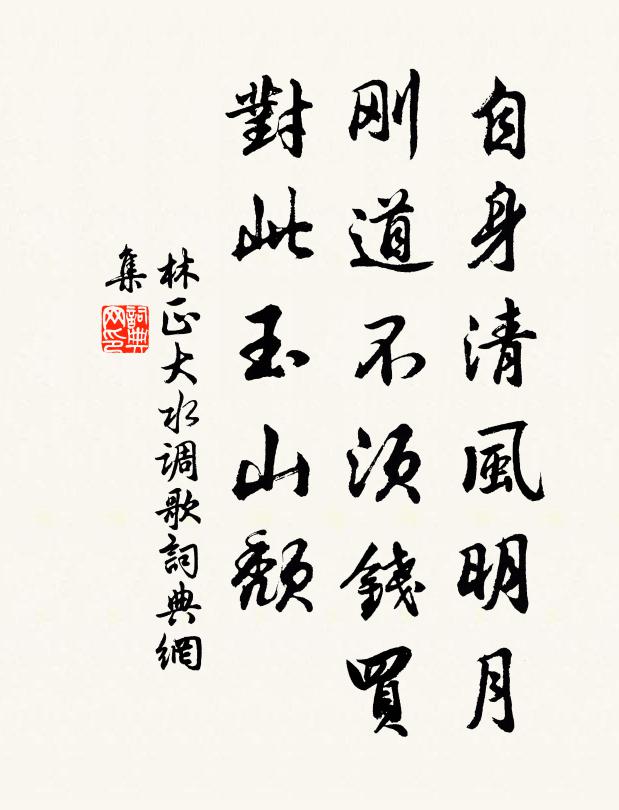 自身清風明月
刚道不須錢買
對此玉山頹
林正大水调歌詞典網
集
詞典
网印